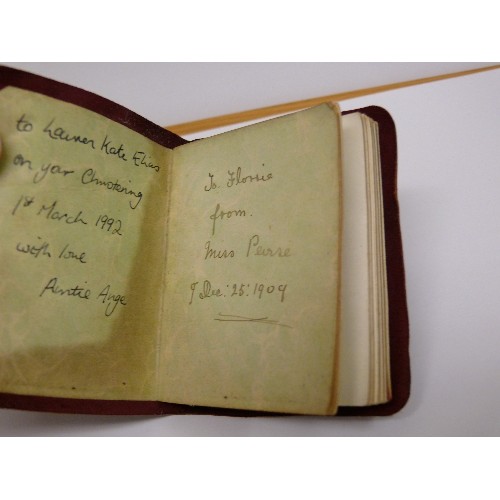 to Lauren Kate Elias
on yar Christering
1st March 1992
with love
Auntie Ange
To Florrie
from.
Miss Peirse
Dec: 25: 1909